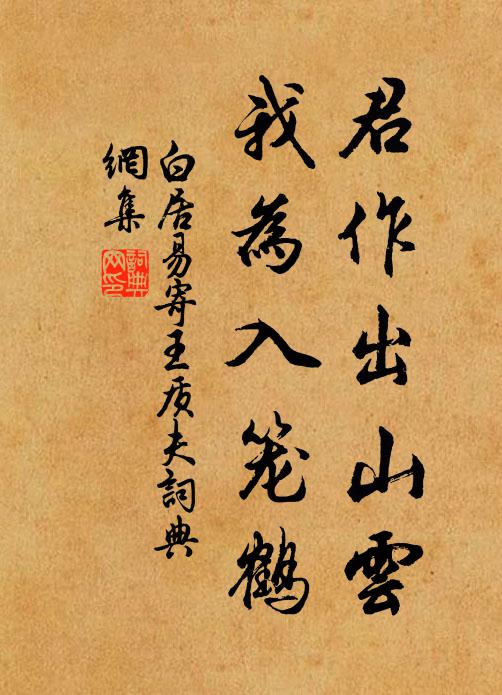 君作出山雲
我為入笼鶴
白居易寄王质夫詞典
網集
詞典网印